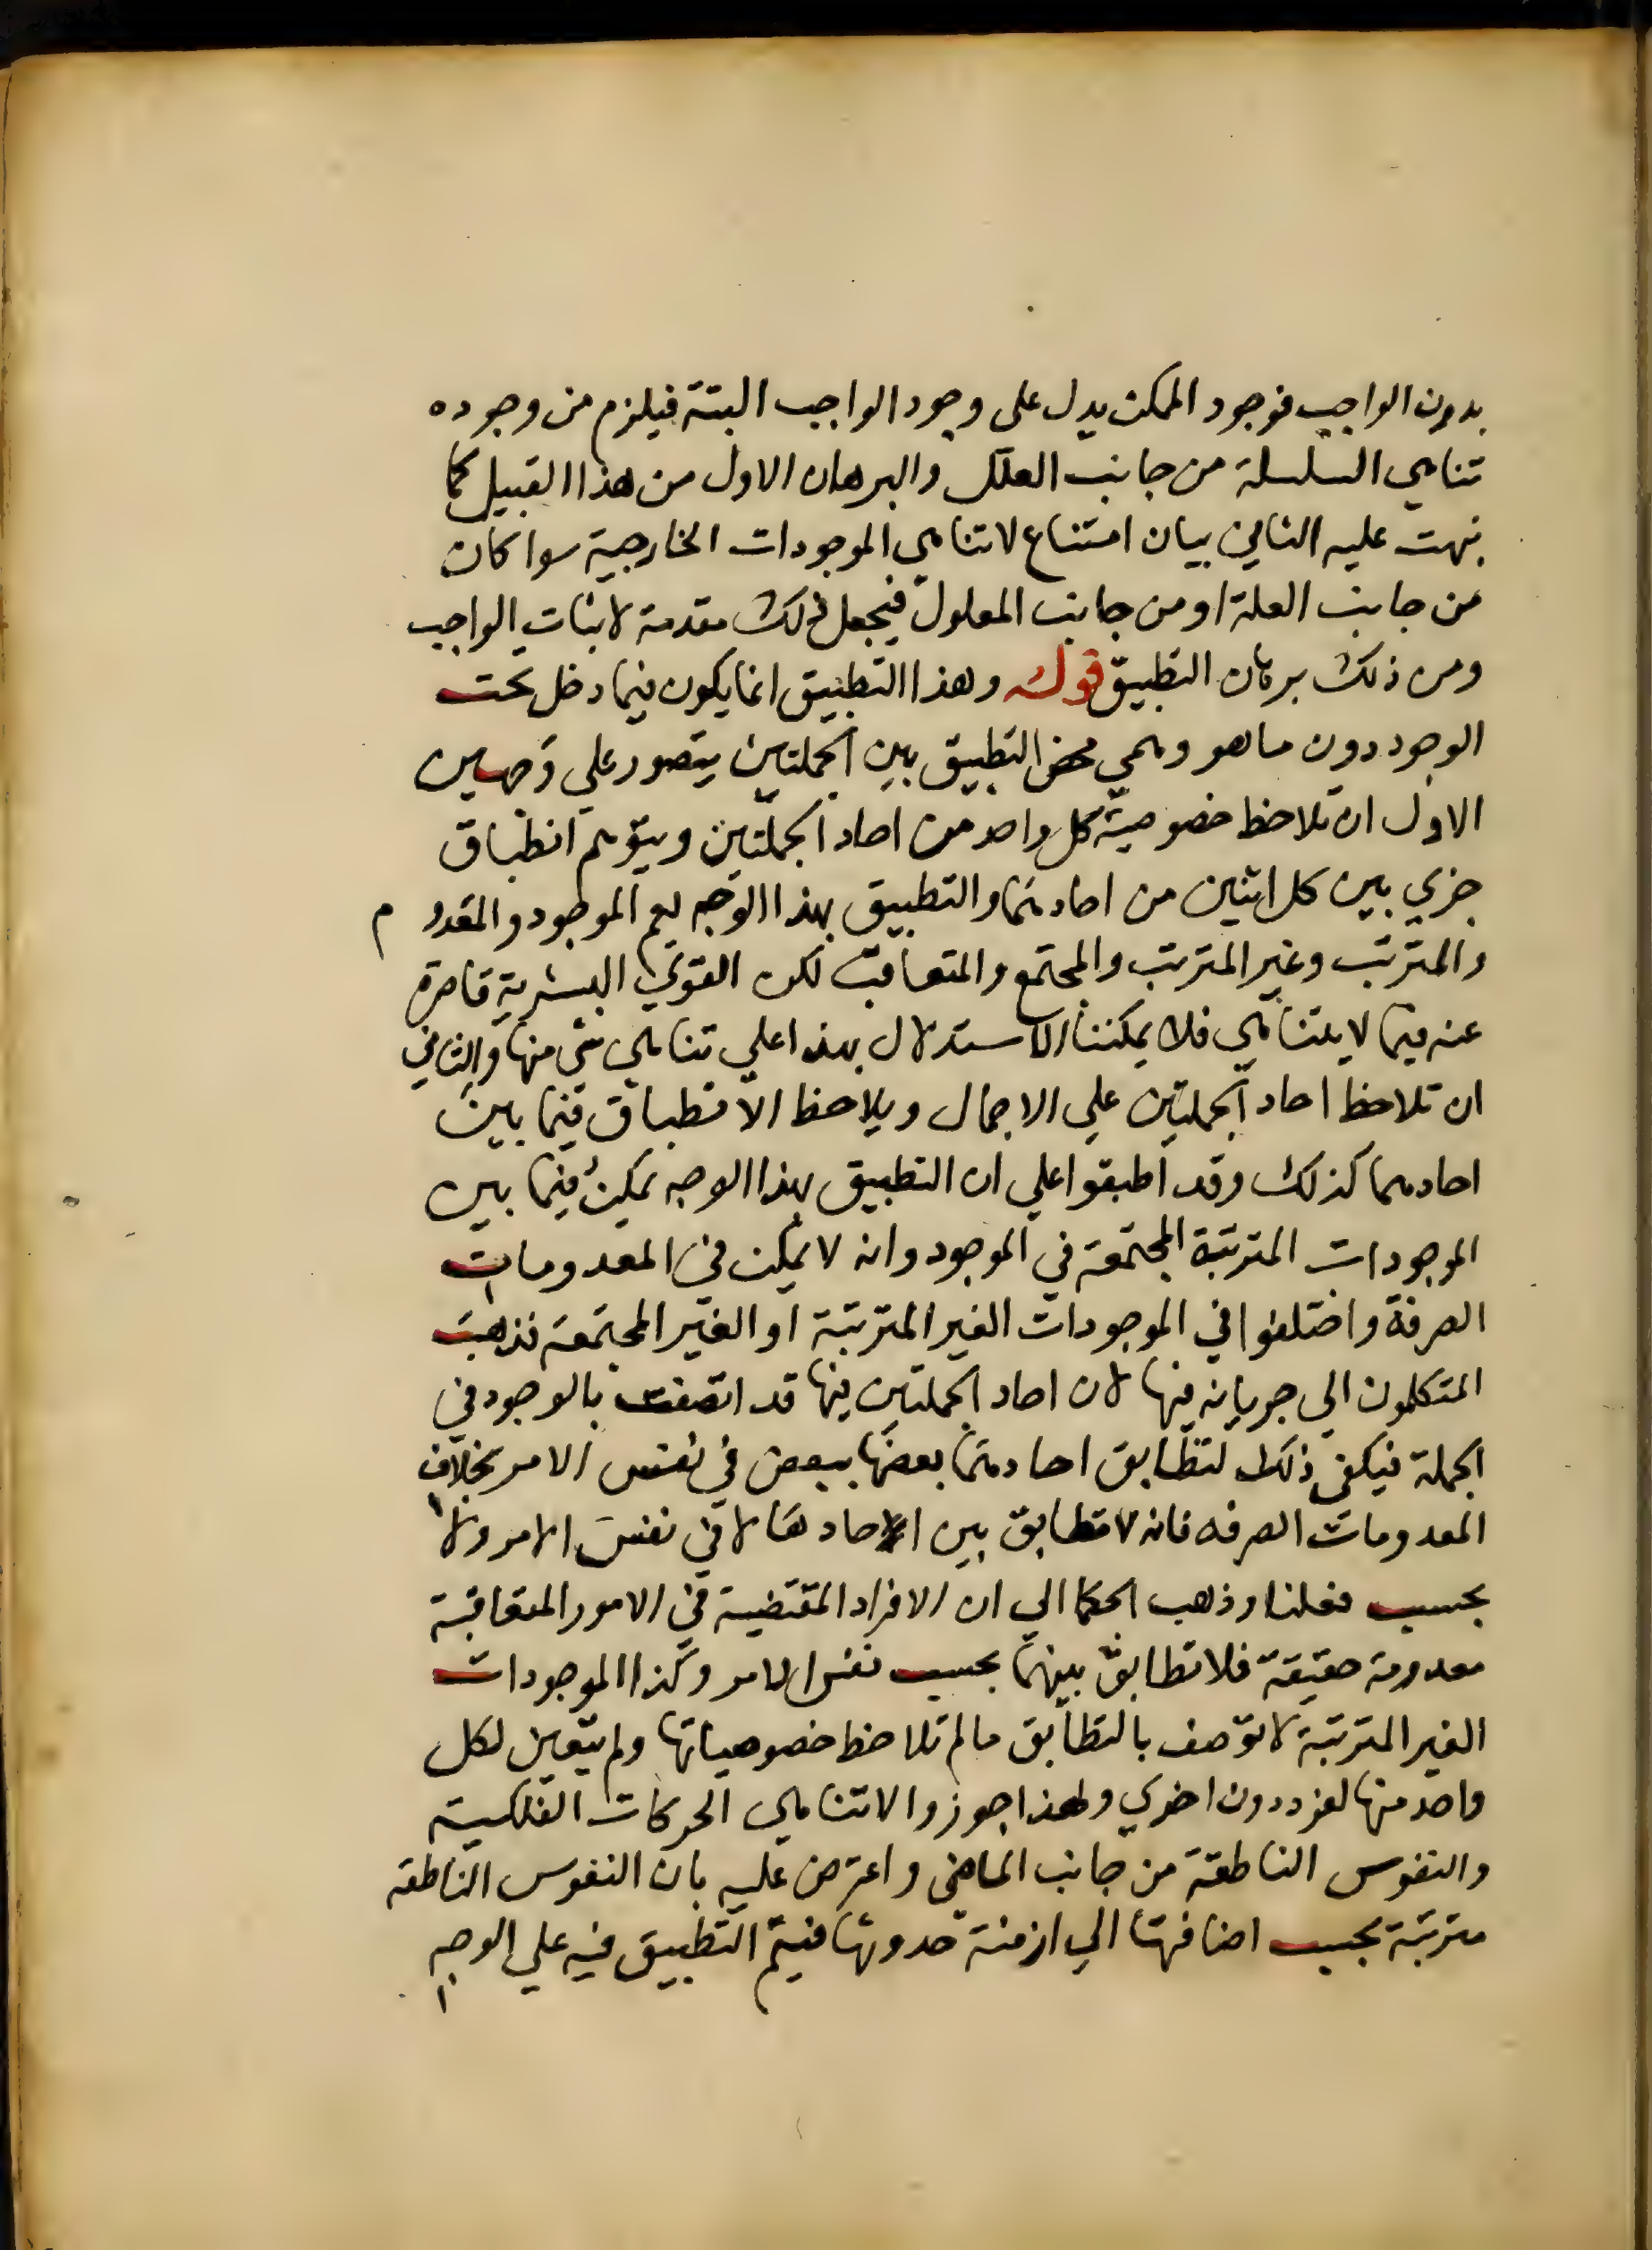 بدون الواجب فوجود الممكن يدل على وجود الواجب البتة فيلزم من وجوده
تناهي السلسلة من جانب العلل والبرهان الاول من هذا القبيل كما
نبهت عليه الثاني بيان امتناع لاتناهي الموجودات الخارجية سوا كان
من جانب العلة او من جانب المعلول فيجعل ذلك مقدمة لاثبات الواجب
ومن ذلك برهان التطبيق قوله وهذا التطبيق انما يكون فيما دخل تحت
الوجود دون ما هو وهمي محض التطبيق بين الجملتين يتصور علي وجهين
الاول ان تلاحظ خصوصية كل واحد من احاد الجملتين ويتوهم انطباق
جزي بين كل اثنين من احادهما والتطبيق بهذا الوجه يعم الموجود والمعدوم
والمترتب وغير المترتب والمجتمع والمتعاقب لكن القوي البشرية قاصرة
عنه فيما لا يتناهي فلا يمكننا الاستدلال بهذا علي تناهي شي منها والثاني
ان تلاحظ احاد الجملتين علي الاجمال ويلاحظ الانطباق فيما بين
احادهما كذلك وقد اطبقوا علي ان التطبيق بهذا الوجه يمكن فيما بين
الموجودات المترتبة المجتمعة في الموجود وانه لا يمكن في المعدومات
الصرفة واختلفوا في الموجودات الغير المترتبة او الغير المجتمعة فذهب
المتكلمون الي جريانه فيها لان احاد الجملتين فيها قد اتصفت بالوجود في
الجملة فيكفي ذلك لتطابق احادهما بعضها ببعض في نفس الامر بخلاف
المعدومات الصرفه فانه لا تطابق بين الاحادها لا في نفس الامر ولا
بحسب فعلنا وذهب الحكما الي ان الافراد المقتضية في الامور المتعاقبة
معدومة حقيقة فلا تطابق بينهما بحسب نفس الامر وكذا الموجودات
الغير المترتبة لا توصف بالتطابق ما لم تلاحظ خصوصياتها ولم يتعين لكل
واحد منها لفرد دون اخري ولهذا جوزوا لاتناهي الحركات الفلكية
والنفوس الناطقة من جانب الماضي واعترض عليه بان النفوس الناطقه
مترتبة بحسب اضافهتا الي ازمنة حدوثها فيتم التطبيق فيه علي الوجه